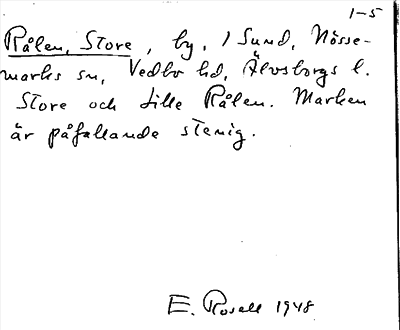 1-5
Rålen, Store, by, 1 Sund, Nösse-
marks sn, Vedbo hd, Älvsborgs l.
Store och Lille Rålen. Marken
är påfallande stenig.
E. Rosell 1948